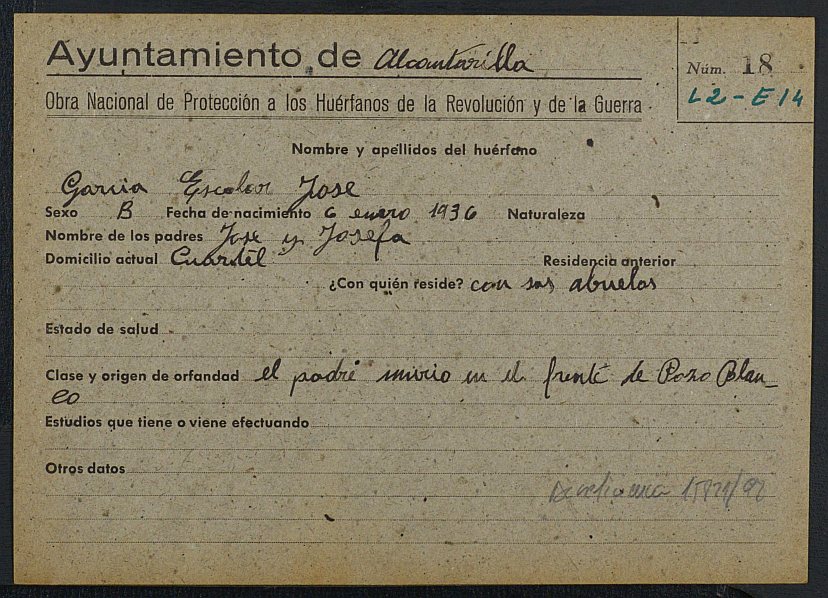 Ayuntamiento de Alcantarilla
Núm. 18
L2-E14
Obra Nacional de Protección a los Huérfanos de la Revolución y de la Guerra
Nombre y apellidos del huérfano
Garcia Escolar Jose
Sexo B Fecha de nacimiento 6 enero 1936 Naturaleza
Nombre de los padres Jose y Josefa
Domicilio actual Cuartel Residencia anterior
¿Con quién reside? con sus abuelos
Estado de salud
Clase y origen de orfandad el padre murio en el frente de Pozo Blan-
co
Estudios que tiene o viene efectuando
Otros datos